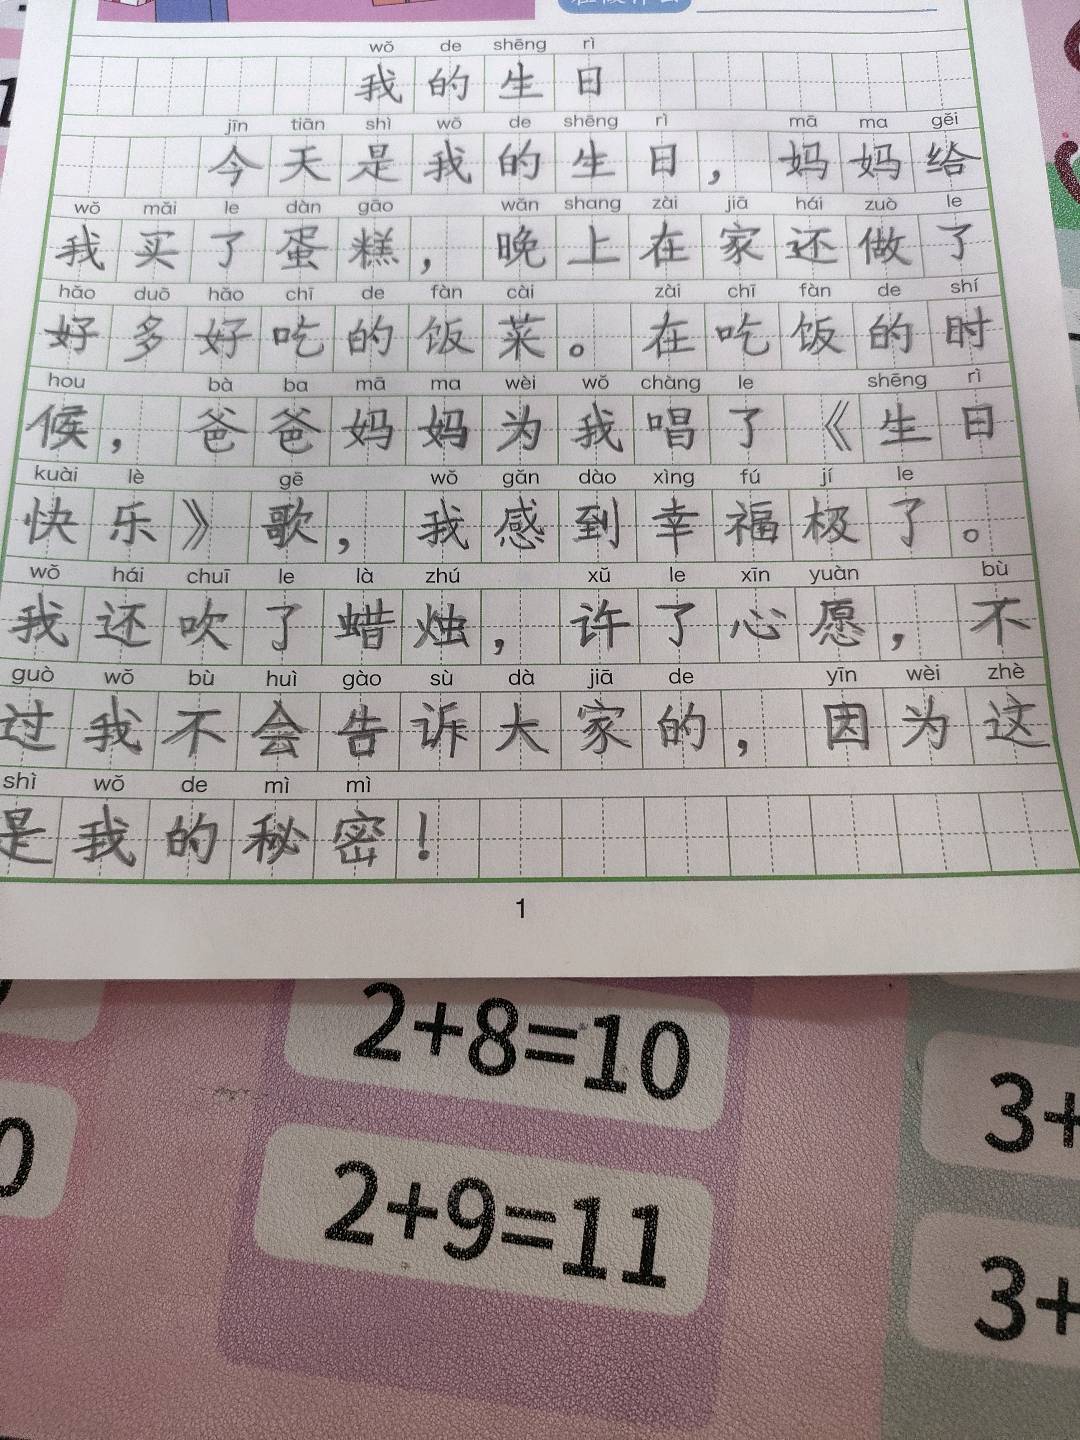 wǒ de shēng rì
我的生日
jīn tiān shì wǒ de shēng rì mā ma gěi
今天是我的生日，妈妈给
wǒ mǎi le dàn gāo wǎn shang zài jiā hái zuò le
我买了蛋糕，晚上在家还做了
hǎo duō hǎo chī de fàn cài zài chī fàn de shí
好多好吃的饭菜。在吃饭的时
hou bà ba mā ma wèi wǒ chàng le shēng rì
候，爸爸妈妈为我唱了《生日
kuài lè gē wǒ gǎn dào xìng fú jí le
快乐》歌，我感到幸福极了。
wǒ hái chuī le là zhú xǔ le xīn yuàn bù
我还吹了蜡烛，许了心愿，不
guò wǒ bù huì gào sù dà jiā de yīn wèi zhè
过我不会告诉大家的，因为这
shì wǒ de mì mì
是我的秘密！
1
2+8=10
3+
2+9=11
3+